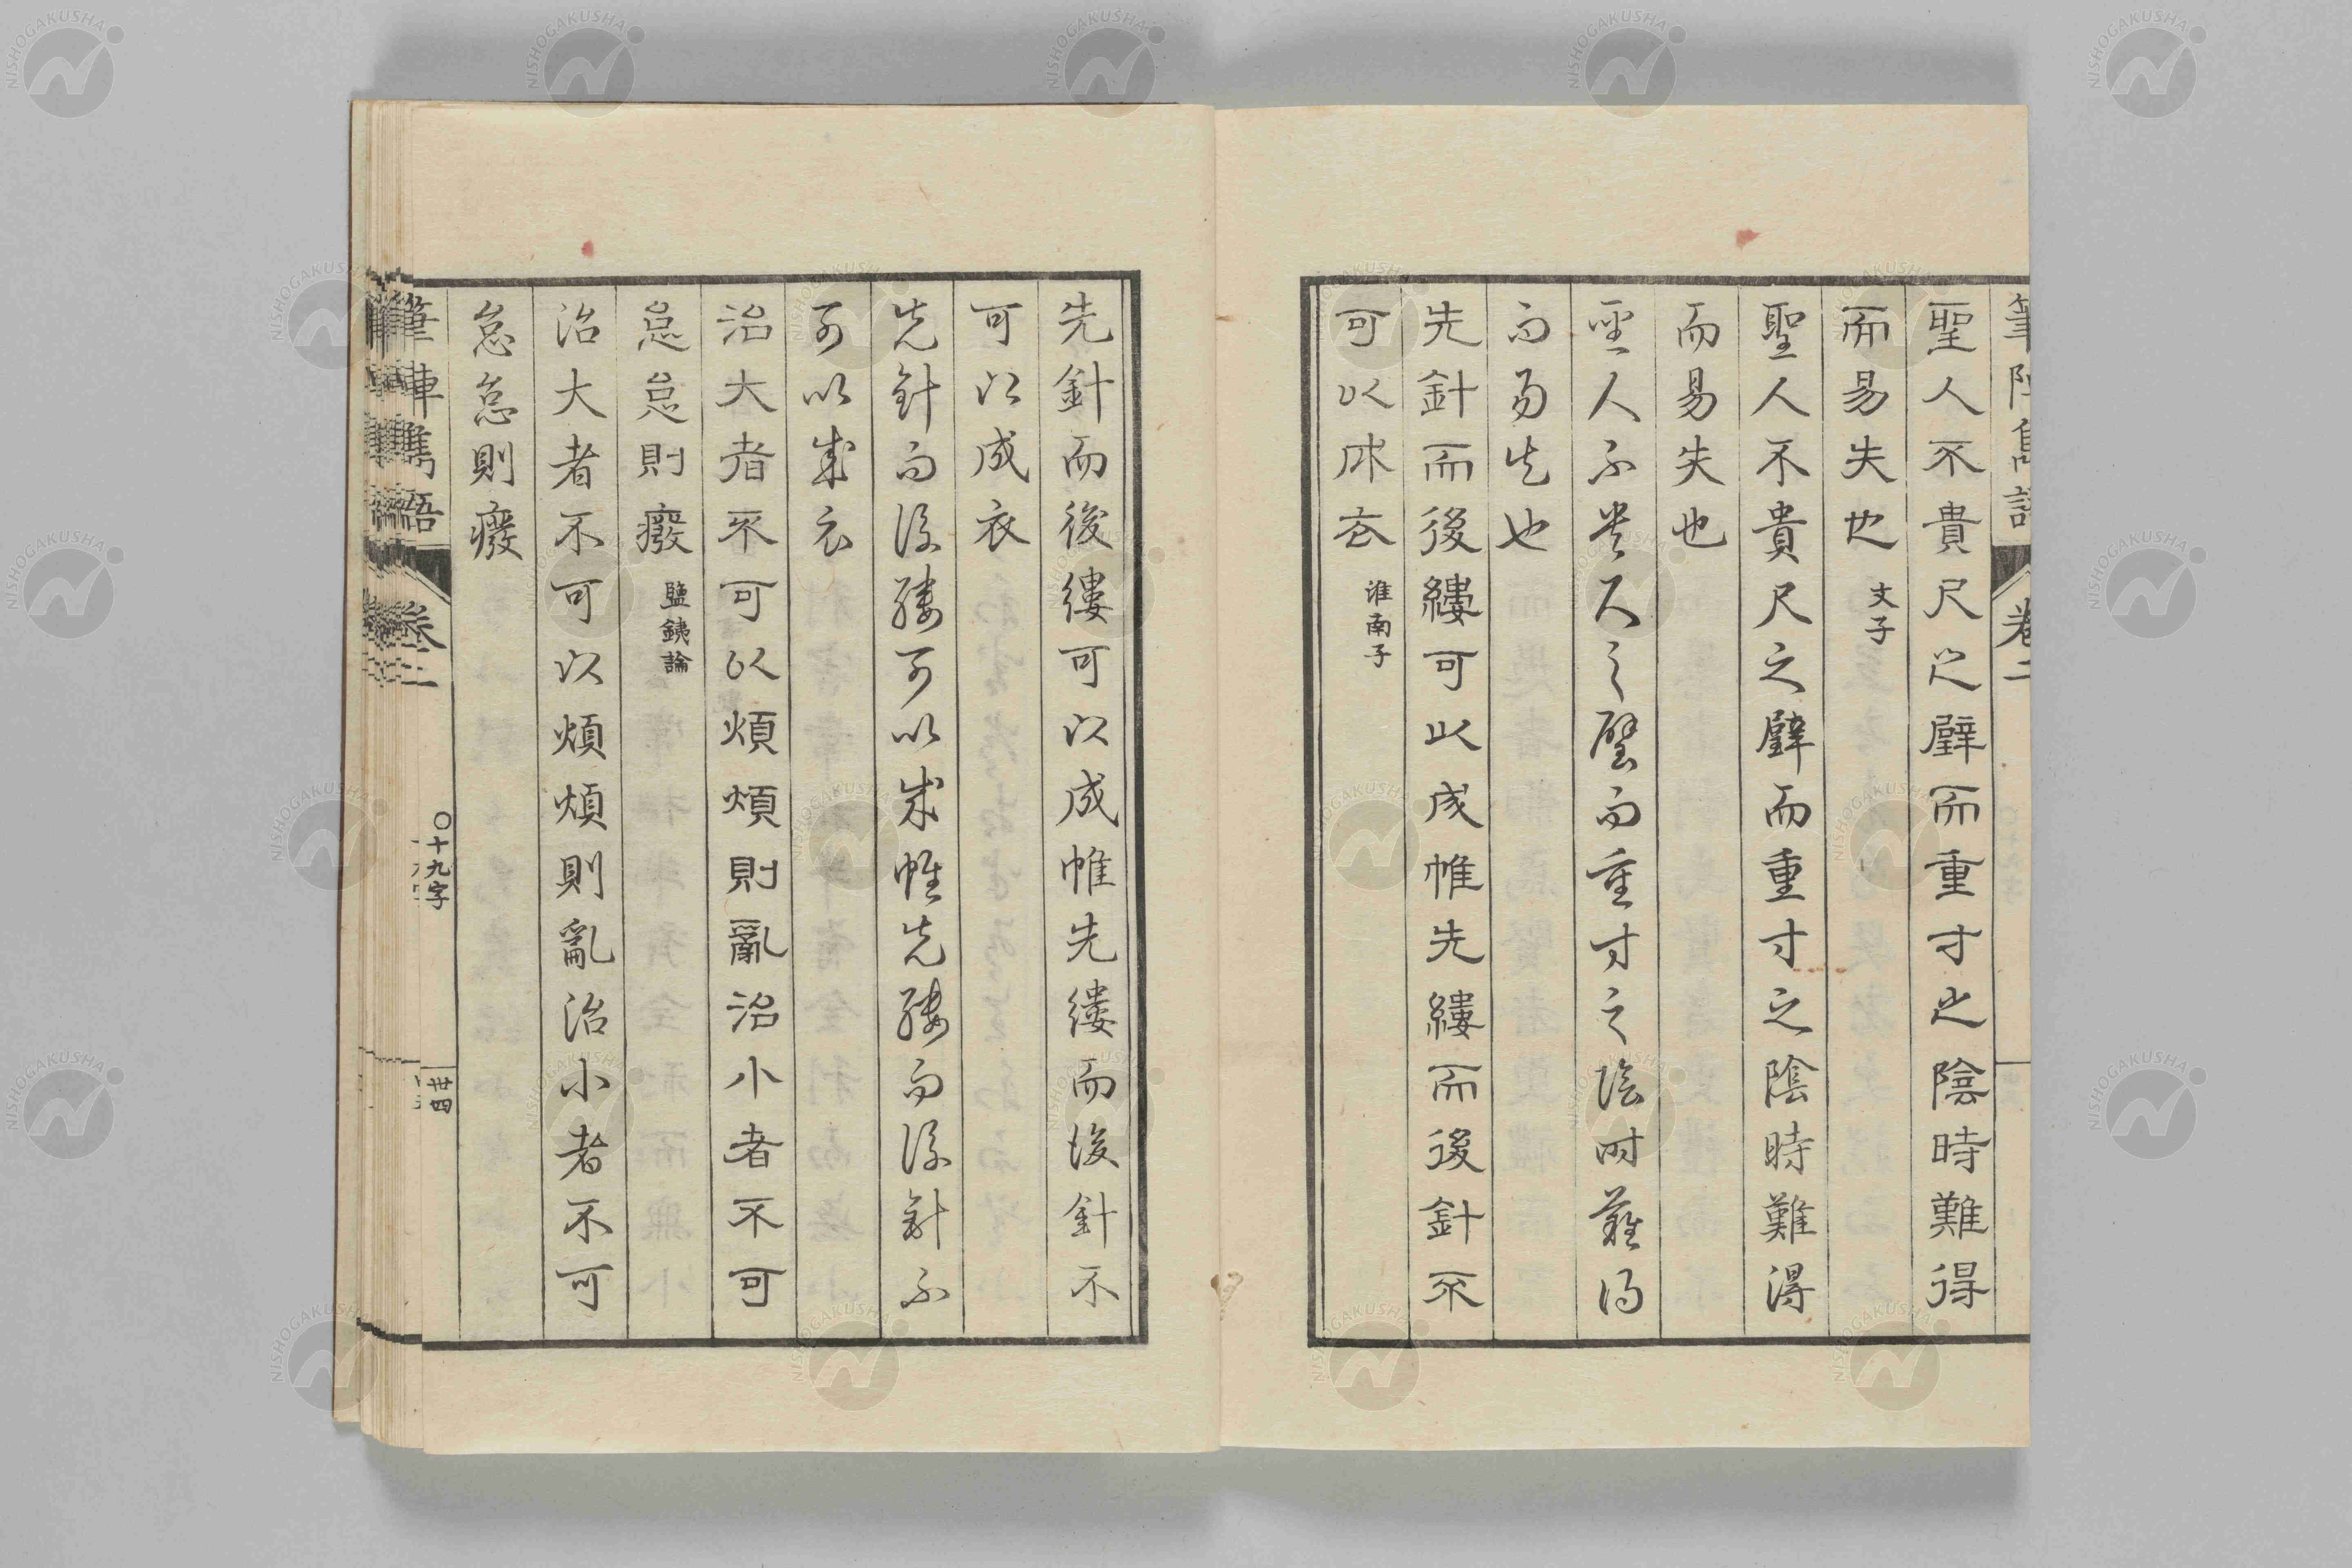 筆陣雋語 卷二
聖人不貴尺之璧而重寸之陰時難得
而易失也 文子
聖人不貴尺之璧而重寸之陰時難得
而易失也
聖人不貴尺之璧而重寸之陰時難得
而易失也
先針而後縷可以成帷先縷而後針不
可以成衣 淮南子
先針而後縷可以成帷先縷而後針不
可以成衣
先針而後縷可以成帷先縷而後針不
可以成衣
治大者不可以煩煩則亂治小者不可
怠怠則癈 鹽銕論
治大者不可以煩煩則亂治小者不可
怠怠則癈
筆陣雋語 卷二 〇十九字 卅四
NISHOGAKUSHA